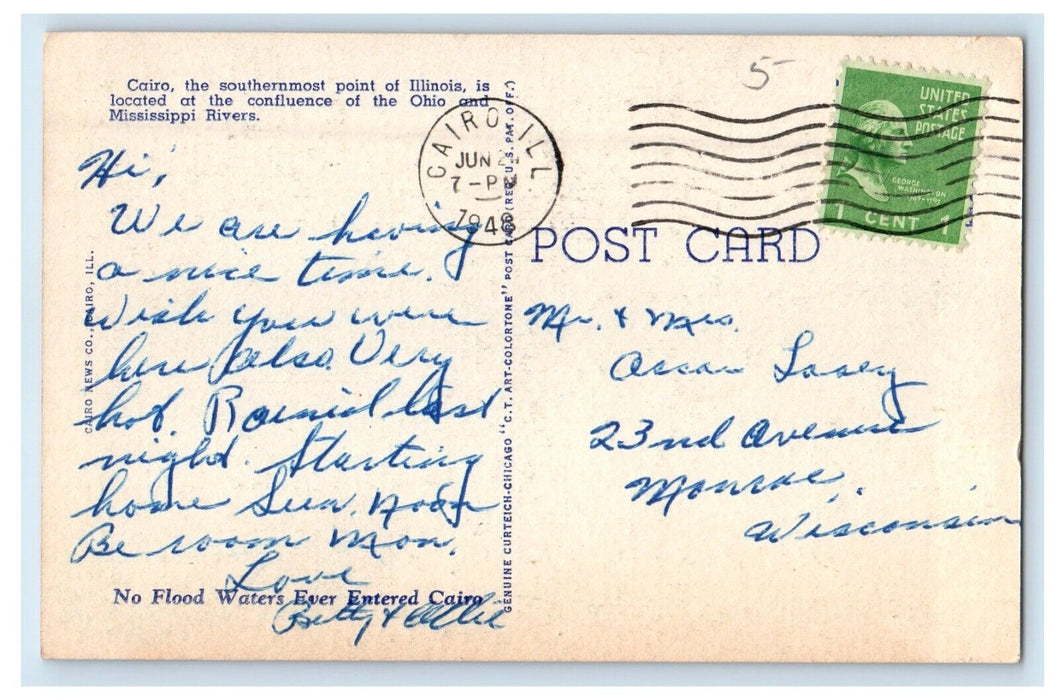 Cairo, the southernmost point of Illinois, is
located at the confluence of the Ohio and
Mississippi Rivers.
5-
CAIRO, ILL.
JUN 2
7-PM
1948
UNITED
STATES
POSTAGE
GEORGE
WASHINGTON
1 CENT 1
POST CARD
Hi,
We are having
a nice time.
Wish you were
here also. Very
hot. Rained last
night. Starting
home Sun. noon
Be room Mon.
Love
Betty & Ollie
Mr. & Mrs.
Oscar Losey
23rd Avenue
Monroe,
Wisconsin
CAIRO NEWS CO., CAIRO, ILL.
GENUINE CURTEICH-CHICAGO "C.T. ART-COLORTONE" POST CARD (REG. U.S. PAT. OFF.)
No Flood Waters Ever Entered Cairo